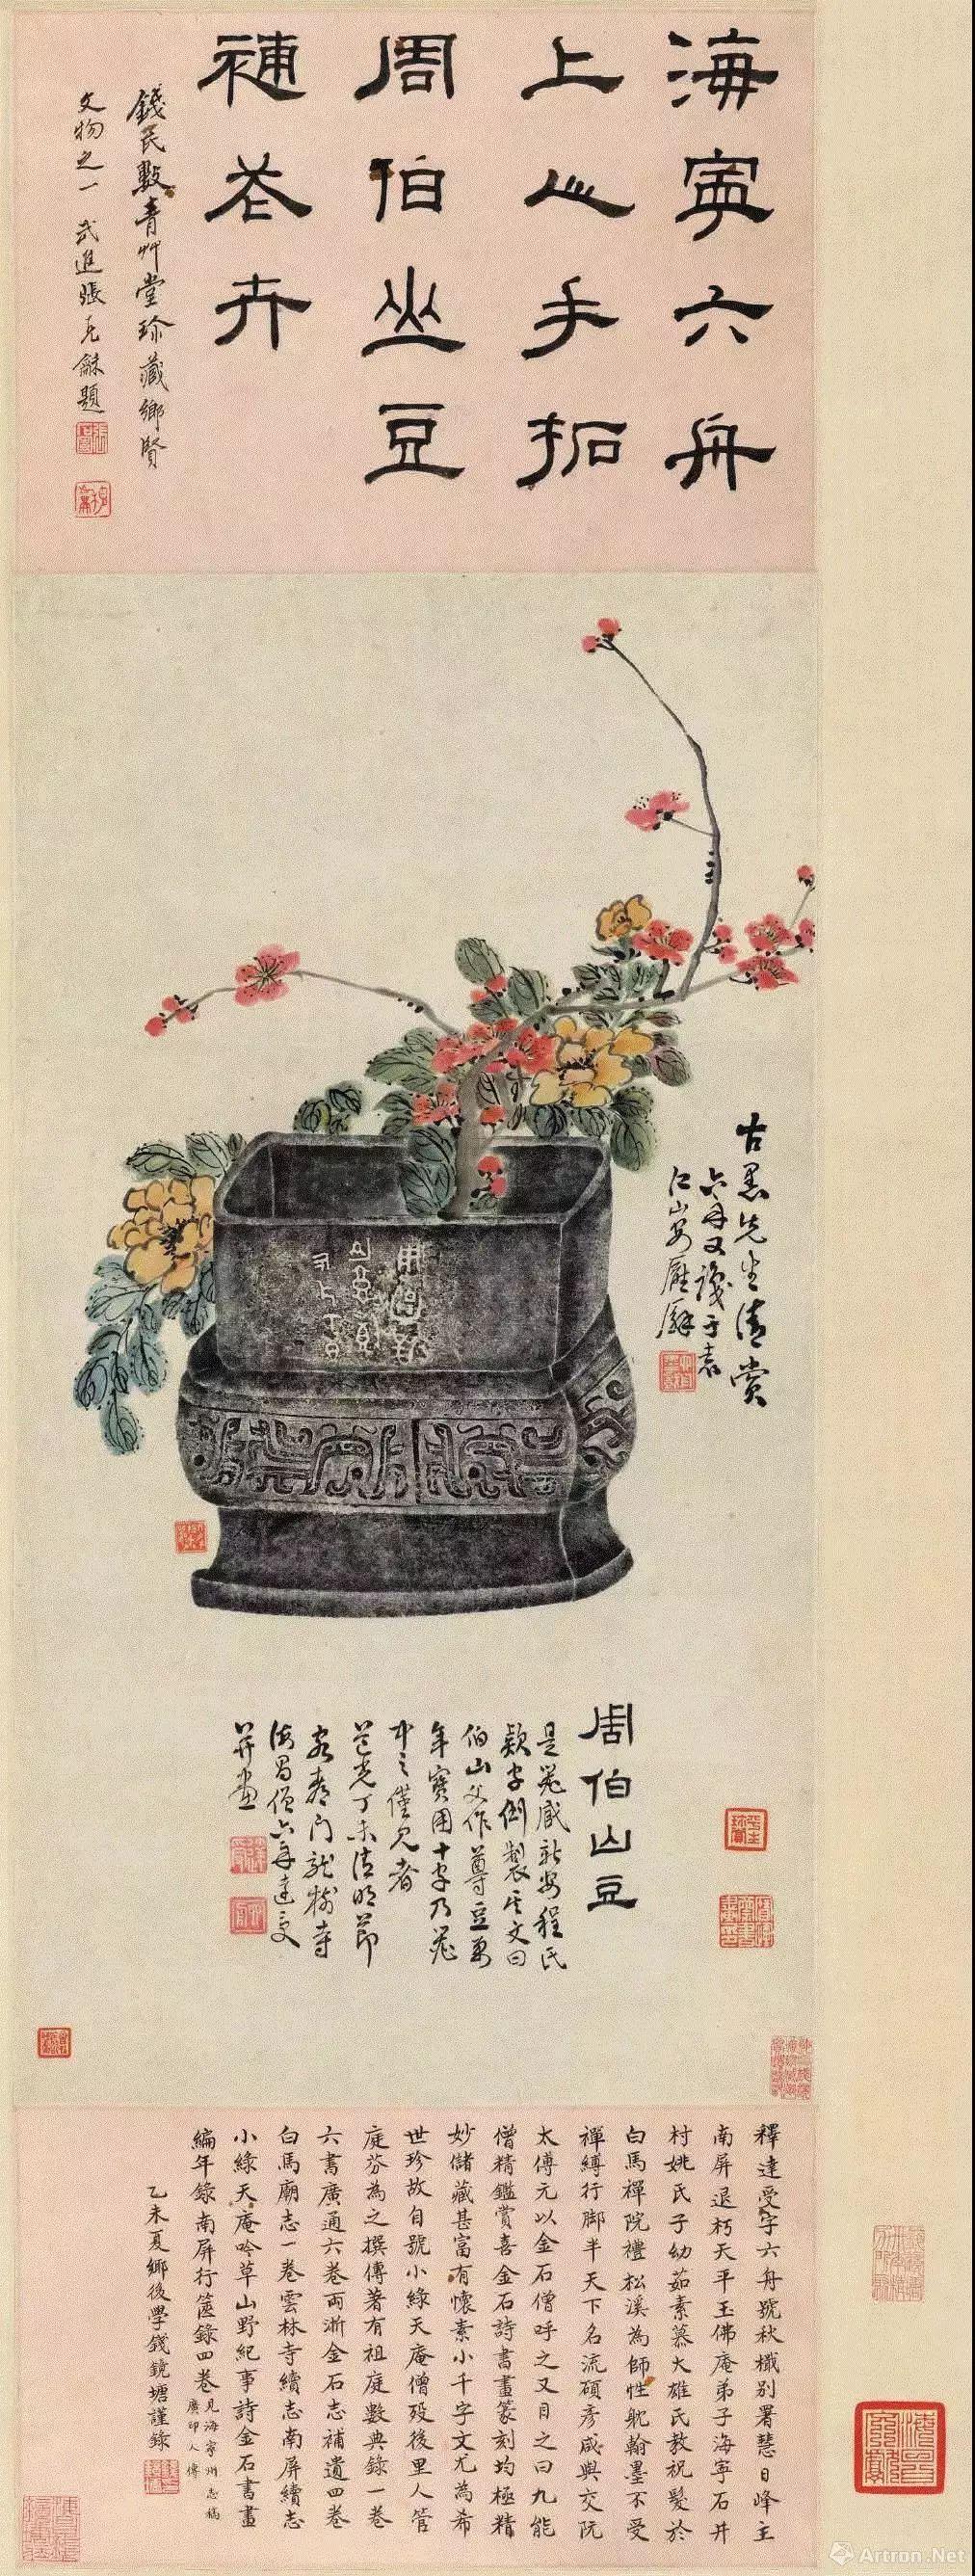 海寧六舟
上人手拓
周伯山豆
補花卉
錢民數青艸堂珍藏鄉賢
文物之一 武進張克龢題
古愚先生清賞
六舟又識于袁
仁山安
周伯山豆
是器感新安程氏
欵字倒製其文曰
伯山父作尊豆萬
年寶用十字乃器
中之僅見者
道光丁未清明節
客都門龍樹寺
海昌僧六舟達受
并畫
釋達受字六舟號秋檝別署慧日峰主
南屏退朽天平玉佛庵弟子海寧石井
村姚氏子幼茹素慕大雄氏教祝髮於
白馬禪院禮松溪為師性躭翰墨不受
禪縛行脚半天下名流碩彥咸與交阮
太傅元以金石僧呼之又目之曰九能
僧精鑑賞喜金石詩書畫篆刻均極精
妙儲藏甚富有懷素小千字文尤為希
世珍故自號小綠天庵僧歿後里人管
庭芬為之撰傳著有祖庭數典錄一卷
六書廣通六卷兩浙金石志補遺四卷
白馬廟志一卷雲林寺續志南屏續志
小綠天庵吟草山野紀事詩金石書畫
編年錄南屏行篋錄四卷見海寧州志稿
廣印人傳
乙未夏鄉後學錢鏡塘謹錄
Artron.Net